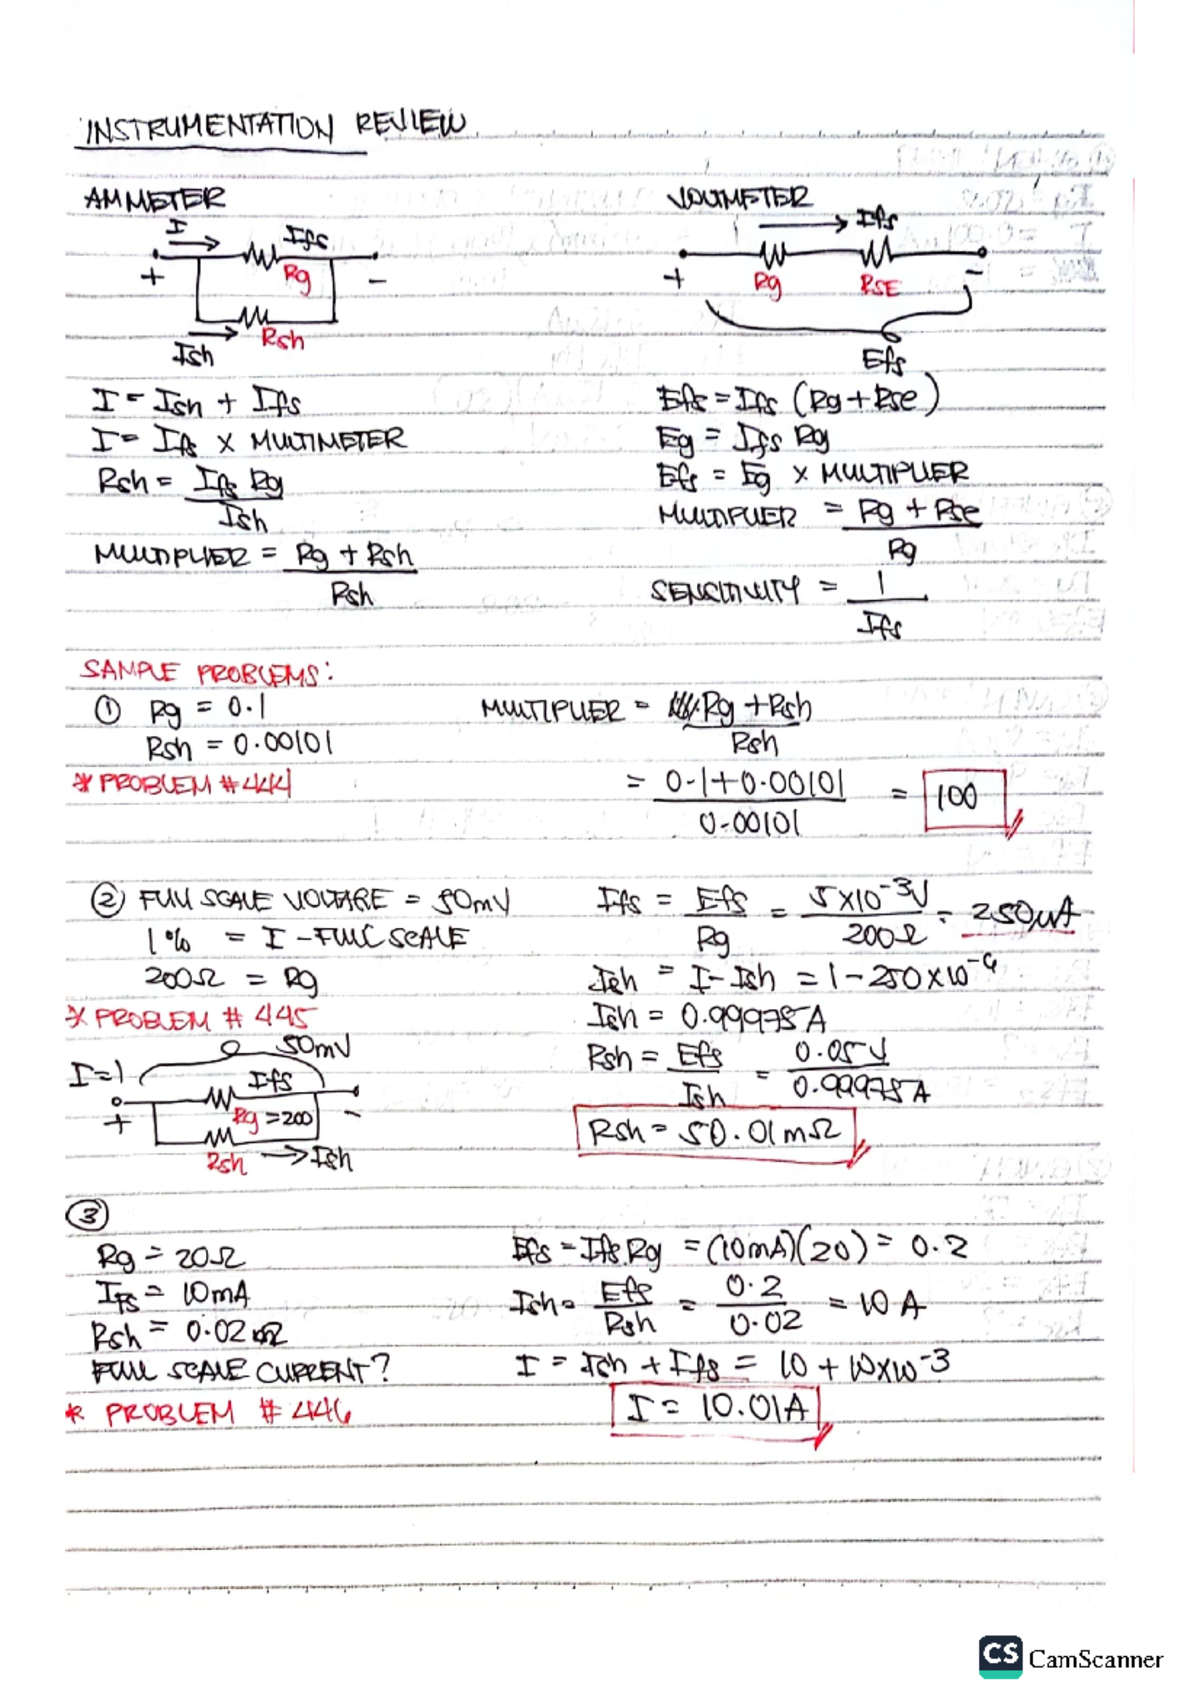 INSTRUMENTATION REVIEW
AMMETER
I
Ifs
+
Rg
-
Rsh
Ish
I = Ish + Ifs
I = Ifs X MULTIMETER
Rsh = Ifs Rg
Ish
MULTIPLIER = Rg + Rsh
Rsh
VOLTMETER
Ifs
+
Rg
RSE
-
Efs
Efs = Ifs (Rg + Rse)
Eg = Ifs Rg
Efs = Eg X MULTIPLIER
MULTIPLIER = Rg + Rse
Rg
SENSITIVITY = 1
Ifs
SAMPLE PROBLEMS:
① Rg = 0.1
Rsh = 0.00101
* PROBLEM # 444
MULTIPLIER = Rg + Rsh
Rsh
= 0.1 + 0.00101 = 100
0.00101
② FULL SCALE VOLTAGE = 50mV
1% = I - FULL SCALE
200Ω = Rg
* PROBLEM # 445
50mV
I = 1
Ifs
+
Rg = 200
-
Rsh → Ish
Ifs = Efs = 5X10⁻³V = 250uA
Rg 200Ω
Ish = I - Ish = 1 - 250 X 10⁻⁶
Ish = 0.99975A
Rsh = Efs = 0.05V
Ish 0.99975A
Rsh = 50.01mΩ
③
Rg = 20Ω
Ifs = 10mA
Rsh = 0.02Ω
FULL SCALE CURRENT?
* PROBLEM # 446
Efs = Ifs Rg = (10mA)(20) = 0.2
Ish = Efs = 0.2 = 10 A
Rsh 0.02
I = Ish + Ifs = 10 + 10X10⁻³
I = 10.01A
CS CamScanner